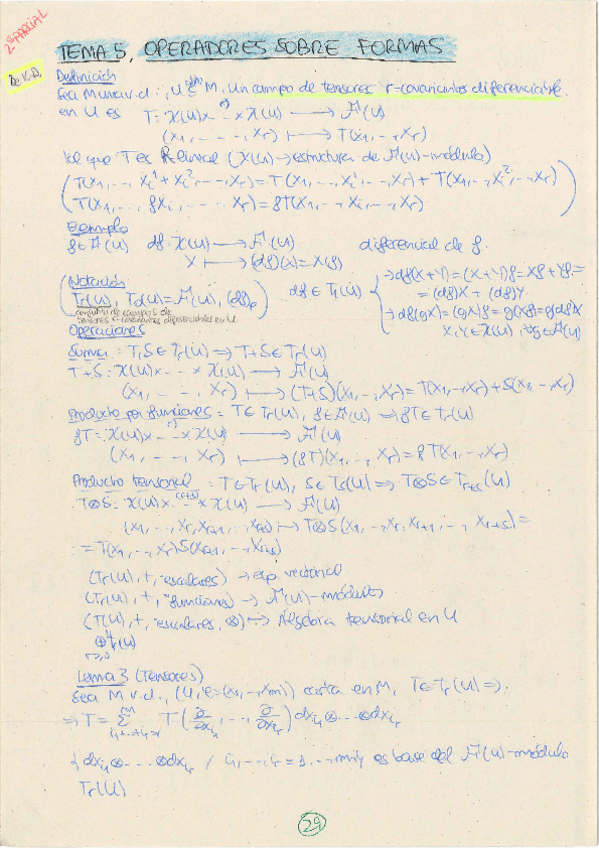 2º PARCIAL
TEMA 5. OPERADORES SOBRE FORMAS
Definición
Sea M una v.d., U M. Un campo de tensores r-covariantes diferenciable
en U es T: 𝒳(U)x ... x 𝒳(U) → ℱ(U)
(X₁, ..., Xᵣ) ↦ T(X₁, ..., Xᵣ)
tal que T es R-lineal (𝒳(U) → estructura de ℱ(U)-módulo)
(T(X₁, ..., Xᵢ¹ + Xᵢ², ..., Xᵣ) = T(X₁, ..., Xᵢ¹, ..., Xᵣ) + T(X₁, ..., Xᵢ², ..., Xᵣ)
T(X₁, ..., fXᵢ, ..., Xᵣ) = fT(X₁, ..., Xᵢ, ..., Xᵣ))
Ejemplo
f ∈ ℱ(U) df: 𝒳(U) → ℱ(U) diferencial de f.
X ↦ (df)(X) = X(f)
Notación
Tᵣ(U), T₀(U) = ℱ(U), (df)ₚ
conjunto de campos de
tensores r-covariantes diferenciables en U
df ∈ T₁(U)
→ df(X+Y) = (X+Y)f = Xf + Yf =
= (df)X + (df)Y
→ df(gX) = (gX)f = g(Xf) = g df X
X, Y ∈ 𝒳(U), ∀g ∈ ℱ(U)
Operaciones
Suma: T, S ∈ Tᵣ(U) ⇒ T+S ∈ Tᵣ(U)
T+S: 𝒳(U)x ... x 𝒳(U) → ℱ(U)
(X₁, ..., Xᵣ) ↦ (T+S)(X₁, ..., Xᵣ) = T(X₁, ..., Xᵣ) + S(X₁, ..., Xᵣ)
Producto por funciones: T ∈ Tᵣ(U), f ∈ ℱ(U) ⇒ fT ∈ Tᵣ(U)
fT: 𝒳(U)x ... x 𝒳(U) → ℱ(U)
(X₁, ..., Xᵣ) ↦ (fT)(X₁, ..., Xᵣ) = f T(X₁, ..., Xᵣ)
Producto tensorial: T ∈ Tᵣ(U), S ∈ Tₛ(U) ⇒ T⊗S ∈ Tᵣ₊ₛ(U)
T⊗S: 𝒳(U)x ...(r+s) x 𝒳(U) → ℱ(U)
(X₁, ..., Xᵣ, Xᵣ₊₁, ..., Xᵣ₊ₛ) ↦ T⊗S(X₁, ..., Xᵣ, Xᵣ₊₁, ..., Xᵣ₊ₛ) =
= T(X₁, ..., Xᵣ)S(Xᵣ₊₁, ..., Xᵣ₊ₛ)
(Tᵣ(U), +, ·escalares) → esp. vectorial
(Tᵣ(U), +, ·funciones) → ℱ(U)-módulo
(T(U), +, ·escalares, ⊗) → Álgebra tensorial en U
⊕Tᵣ(U)
r≥0
Lema 3 (Tensores)
Sea M v.d., (U, φ=(x₁, ..., xₘ)) carta en M, T ∈ Tᵣ(U) ⇒
⇒ T = Σ T(∂/∂xᵢ₁, ..., ∂/∂xᵢᵣ) dxᵢ₁ ⊗ ... ⊗ dxᵢᵣ
{dxᵢ₁ ⊗ ... ⊗ dxᵢᵣ / i₁, ..., iᵣ = 1, ..., m} es base del ℱ(U)-módulo
Tᵣ(U)
29